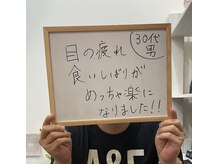 30代
男
目の疲れ
食いしばりが
めっちゃ楽に
なりました!!